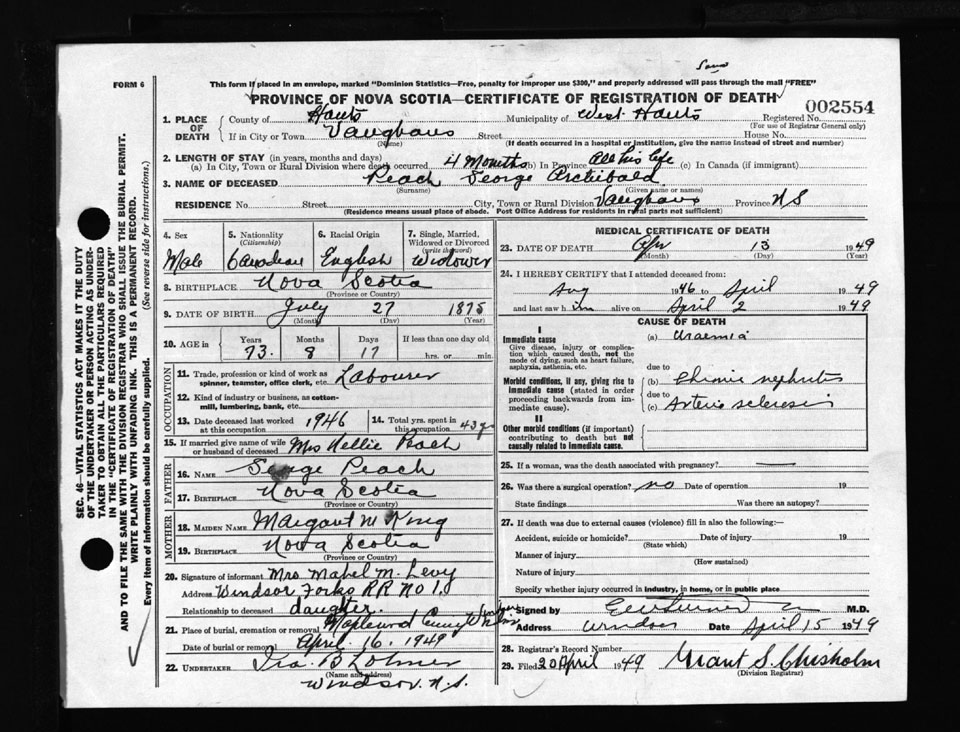 Same
FORM 6
This form if placed in an envelope, marked "Dominion Statistics—Free, penalty for improper use $300," and properly addressed will pass through the mail "FREE"
PROVINCE OF NOVA SCOTIA—CERTIFICATE OF REGISTRATION OF DEATH
002554
1. PLACE OF DEATH County of Hants Municipality of West Hants Registered No.
(For use of Registrar General only)
If in City or Town Vaughans Street House No.
(Name) (If death occurred in a hospital or institution, give the name instead of street and number)
2. LENGTH OF STAY (in years, months and days)
(a) In City, Town or Rural Division where death occurred 4 Months (b) In Province All his life (c) In Canada (if immigrant)
3. NAME OF DECEASED Peach George Archibald
(Surname) (Given name or names)
RESIDENCE No. Street City, Town or Rural Division Vaughans Province N S
(Residence means usual place of abode. Post Office Address for residents in rural parts not sufficient)
4. Sex Male
5. Nationality (Citizenship) Canadian
6. Racial Origin English
7. Single, Married, Widowed or Divorced (write the word) Widower
8. BIRTHPLACE Nova Scotia
(Province or Country)
9. DATE OF BIRTH July 27 1875
(Month) (Day) (Year)
10. AGE in Years Months Days If less than one day old
73 8 17 hrs. or min.
OCCUPATION
11. Trade, profession or kind of work as spinner, teamster, office clerk, etc. Labourer
12. Kind of industry or business, as cotton-mill, lumbering, bank, etc.
13. Date deceased last worked at this occupation 1946
14. Total yrs. spent in this occupation 43 y
15. If married give name of wife or husband of deceased Mrs Nellie Peach
FATHER
16. NAME George Peach
17. BIRTHPLACE Nova Scotia
(Province or Country)
MOTHER
18. MAIDEN NAME Margaret M King
19. BIRTHPLACE Nova Scotia
(Province or Country)
20. Signature of informant Mrs. Mabel M. Levy
Address Windsor Forks RR No 1.
Relationship to deceased daughter.
21. Place of burial, cremation or removal Maplewood
Date of burial or removal April. 16. 1949
22. UNDERTAKER Ira. B
(Name and address)
Windsor. N.S.
MEDICAL CERTIFICATE OF DEATH
23. DATE OF DEATH Apr 13 1949
(Month) (Day) (Year)
24. I HEREBY CERTIFY that I attended deceased from:
Aug 1946 to April 1949
and last saw him alive on April 2 1949
CAUSE OF DEATH
I
Immediate cause
Give disease, injury or complication which caused death, not the mode of dying, such as heart failure, asphyxia, asthenia, etc.
(a) Uraemia
due to
Morbid conditions, if any, giving rise to immediate cause (stated in order proceeding backwards from immediate cause).
(b) Chronic nephritis
due to
(c) Arterio sclerosis
II
Other morbid conditions (if important) contributing to death but not causally related to immediate cause.
25. If a woman, was the death associated with pregnancy? —
26. Was there a surgical operation? no Date of operation 19
State findings Was there an autopsy?
27. If death was due to external causes (violence) fill in also the following:—
Accident, suicide or homicide? Date of injury 19
(State which)
Manner of injury
(How sustained)
Nature of injury
Specify whether injury occurred in industry, in home, or in public place
Signed by M.D.
Address Windsor Date April 15 1949
28. Registrar's Record Number
29. Filed 20 April 1949 Grant S. Chisholm
(Division Registrar)
SEC. 46—VITAL STATISTICS ACT MAKES IT THE DUTY
OF THE UNDERTAKER OR PERSON ACTING AS UNDER-
TAKER TO OBTAIN ALL THE PARTICULARS REQUIRED
IN THE "CERTIFICATE OF REGISTRATION OF DEATH"
AND TO FILE THE SAME WITH THE DIVISION REGISTRAR WHO SHALL ISSUE THE BURIAL PERMIT.
WRITE PLAINLY WITH UNFADING INK. THIS IS A PERMANENT RECORD.
Every item of information should be carefully supplied. (See reverse side for instructions.)